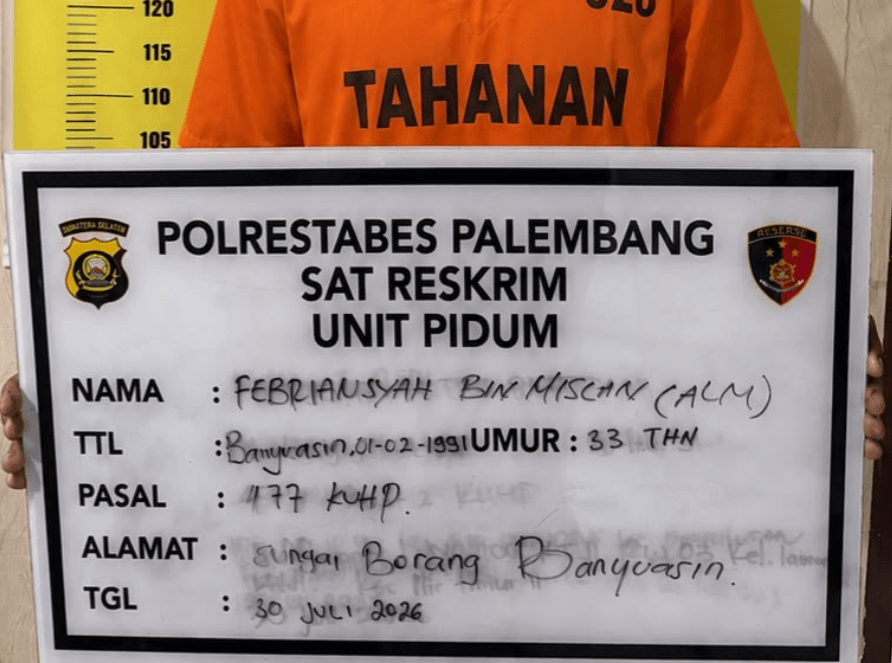 120
115
110
105
TAHANAN
SUMATERA SELATAN
RESERSE
POLRESTABES PALEMBANG
SAT RESKRIM
UNIT PIDUM
NAMA : FEBRIANSYAH BIN MISLAN (ALM)
TTL : Banyuasin, 01-02-1991 UMUR : 33 THN
PASAL : 477 KUHP.
ALAMAT : Sungai Borang Banyuasin.
TGL : 30 JULI 2026